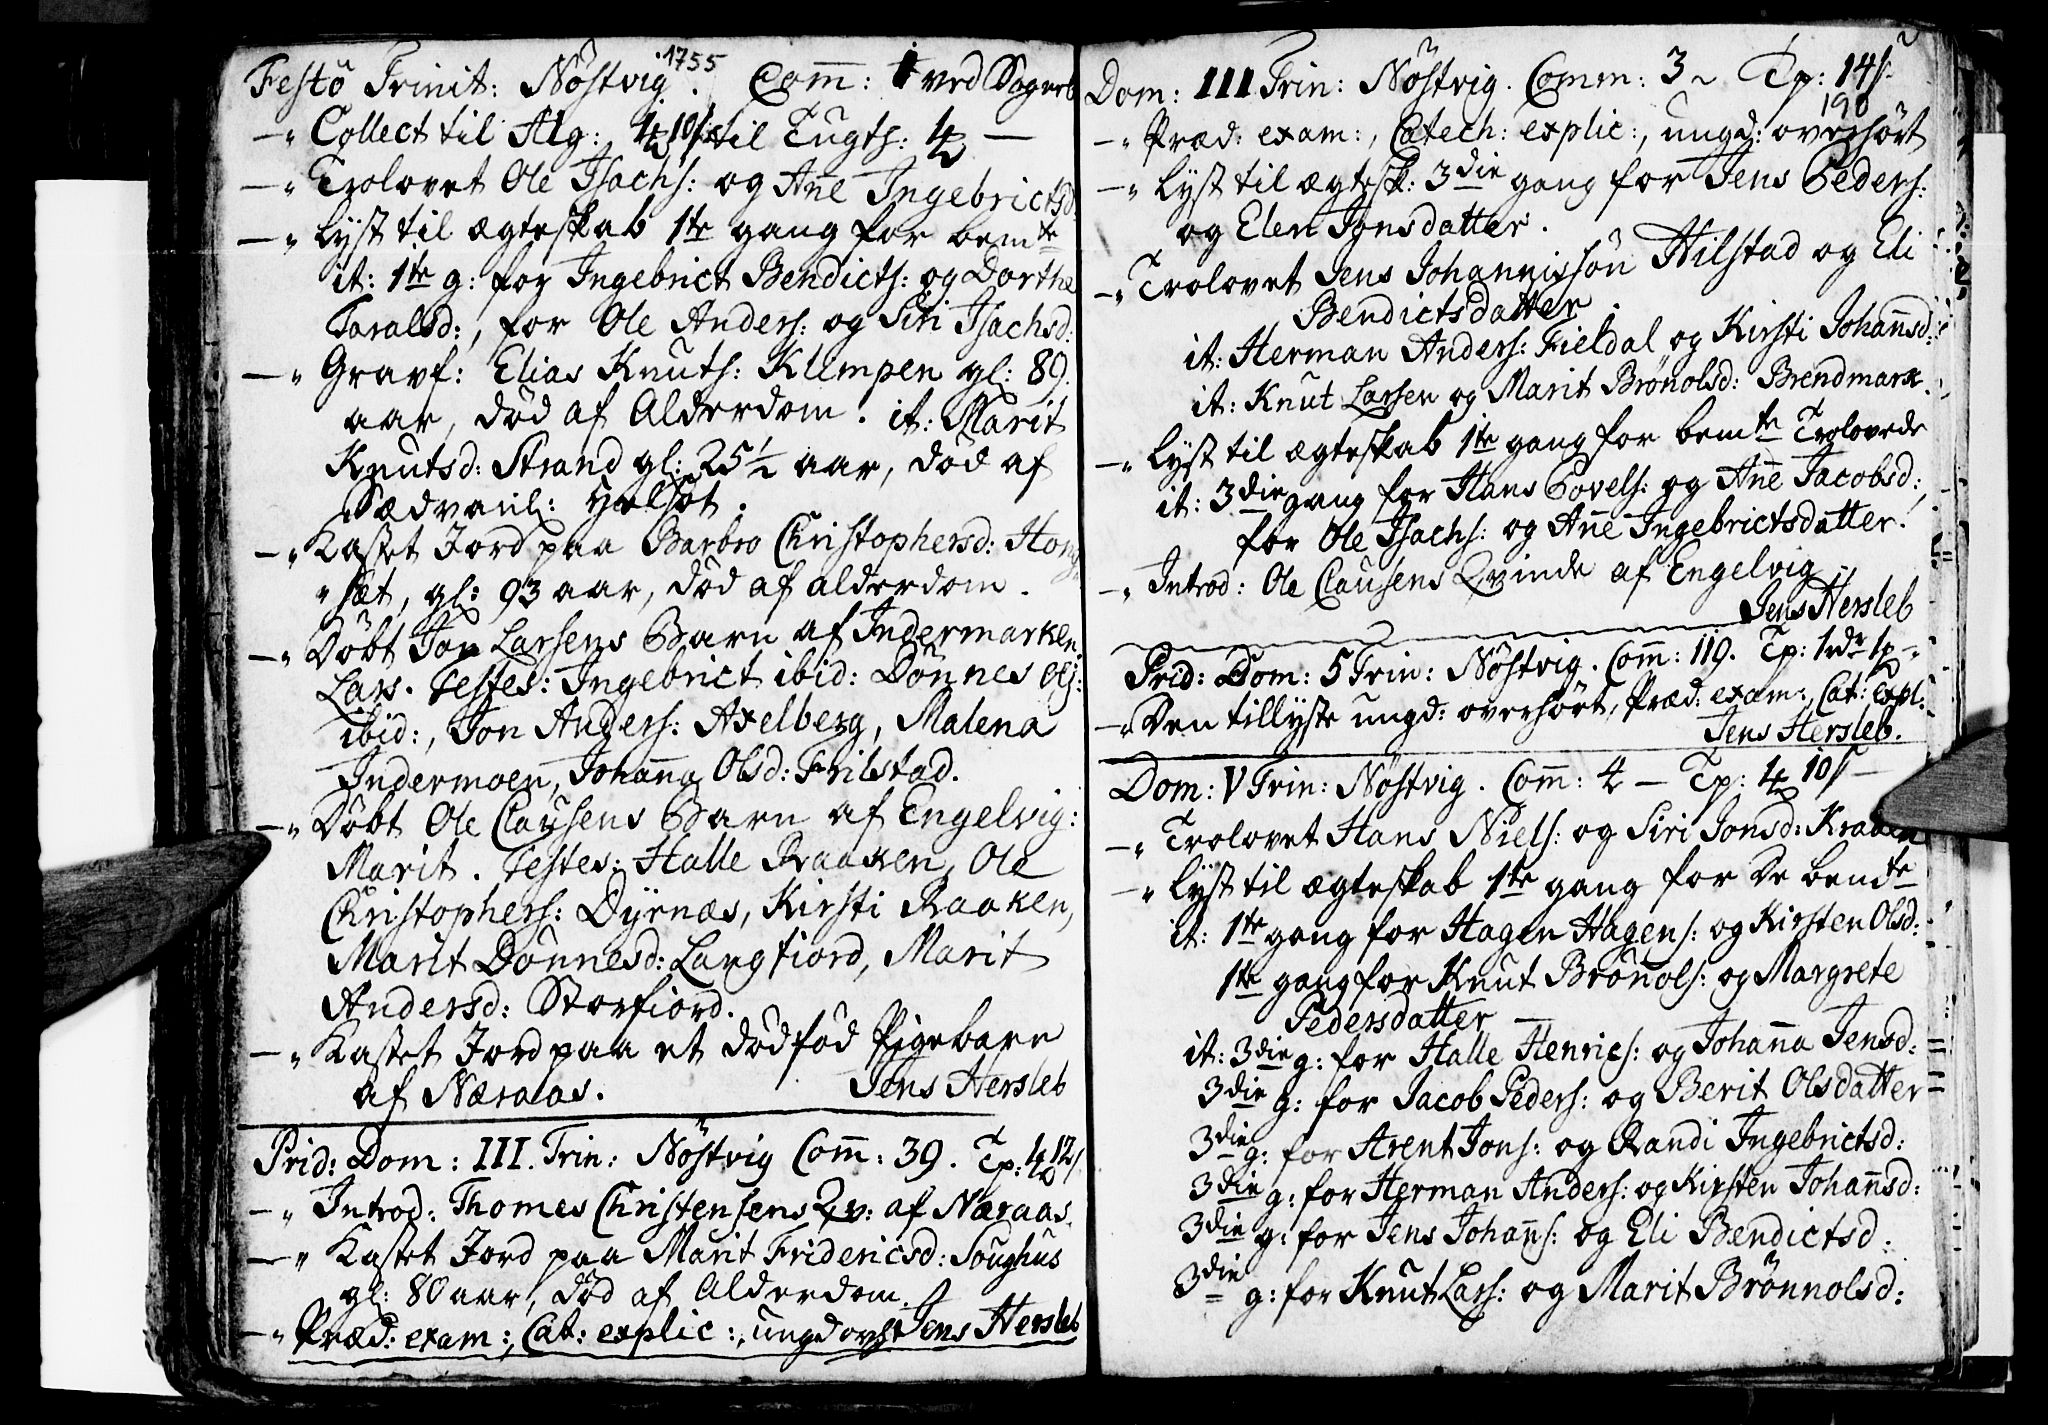 1755
Festô Trinit: Nöstvig. Com̄: 1 ved Sogneb
—" Collect til Alg: 10ß til Tugth:
—" Trolovet Ole Isachs: og An̄e Ingebrictsd.
—" Lyst til ægteskab 1te gang for bemte
it: 1te g: for Ingebrict Bendicts: og Dorthe
Taralsd:, for Ole Anders: og Siri Isachsd:
—" Gravf: Elias Knuts: Klumpen gl: 89.
aar, död af Alderdom. it: Marit
Knutsd: Strand gl: 25½ aar, död af
Sædvanl: Helsot.
—" Kastet Jord paa Barbro Christophersd:
"sæt, gl: 93 aar, död af alderdom.
—" Döbt Jon Larsens Barn af Indermarken
Lars. Testes: Ingebrict ibid: Dönnes
ibid:, Jon Anders: Axelberg, Malena
Indermoen, Johan̄a Olsd: Frilstad.
—" Döbt Ole Clausens Barn af Engelvig:
Marit. Testes: Halle Raaken, Ole
Christophers: Dyrnæs, Kirsti Raaken,
Marit Dönnesd: Langfiord, Marit
Andersd: Storfiord.
—" Kastet Jord paa et dödföd Pigebarn
af Næraas. Jens Hersleb
Prid: Dom: III. Trin: Nöstvig Com̄: 39. Tp: 12ß
—" Introd: Thomes Christensens Qv: af Næraas.
—" Kastet Jord paa Marit Fridericsd: Soughus
gl: 80 aar, död af Alderdom.
—" Præd: exam:, Cat: explic:, ungd ovht Jens Hersleb
Dom: III Trin: Nöstvig. Comm: 3 Tp: 14ß
190
—" Præd: exam:, Catech: explic:, ungd: overhört
—" Lyst til ægtesk: 3die gang for Jens Peders:
og Elen Jonsdatter.
—" Trolovet Jens Johannissön Hilstad og Eli
Bendictsdatter.
it: Herman Anders: Fieldal og Kirsti Johan̄sd:
it: Knut Larsen og Marit Brönolsd: Brendmark.
—" Lyst til ægteskab 1te gang for bemte Trolovede
it: 3die gang for Hans Povels: og An̄e Jacobsd:,
for Ole Isachs: og An̄e Ingebrictsdatter.
—" Introd: Ole Clausens Qvinde af Engelvig
Jens Hersleb
Prid: Dom: 5 Trin: Nöstvig. Com̄: 119. Tp: 1rdr 1p
—" Den tillyste ungd: overhört, Præd: exam:, Cat: expl:
Jens Hersleb.
Dom: V Trin: Nöstvig. Com̄: 4 — Tp: 10ß —
—" Trolovet Hans Niels: og Siri Jonsd: Kraaken
—" Lyst til ægteskab 1te gang for De bemte
it: 1te gang for Hagen Hagens: og Kirsten Olsd:
1te gang for Knut Brönols: og Margrete
Pedersdatter —
it: 3die g: for Halle Henrics: og Johan̄a Jensd:
3die g: for Jacob Peders: og Berit Olsdatter
3die g: for Arent Jons: og Randi Ingebrictsd:
3die g: for Herman Anders: og Kirsten Johan̄sd:
3die g: for Jens Johan̄s: og Eli Bendictsd:
3die g: for Knut Lars: og Marit Brönnolsd: